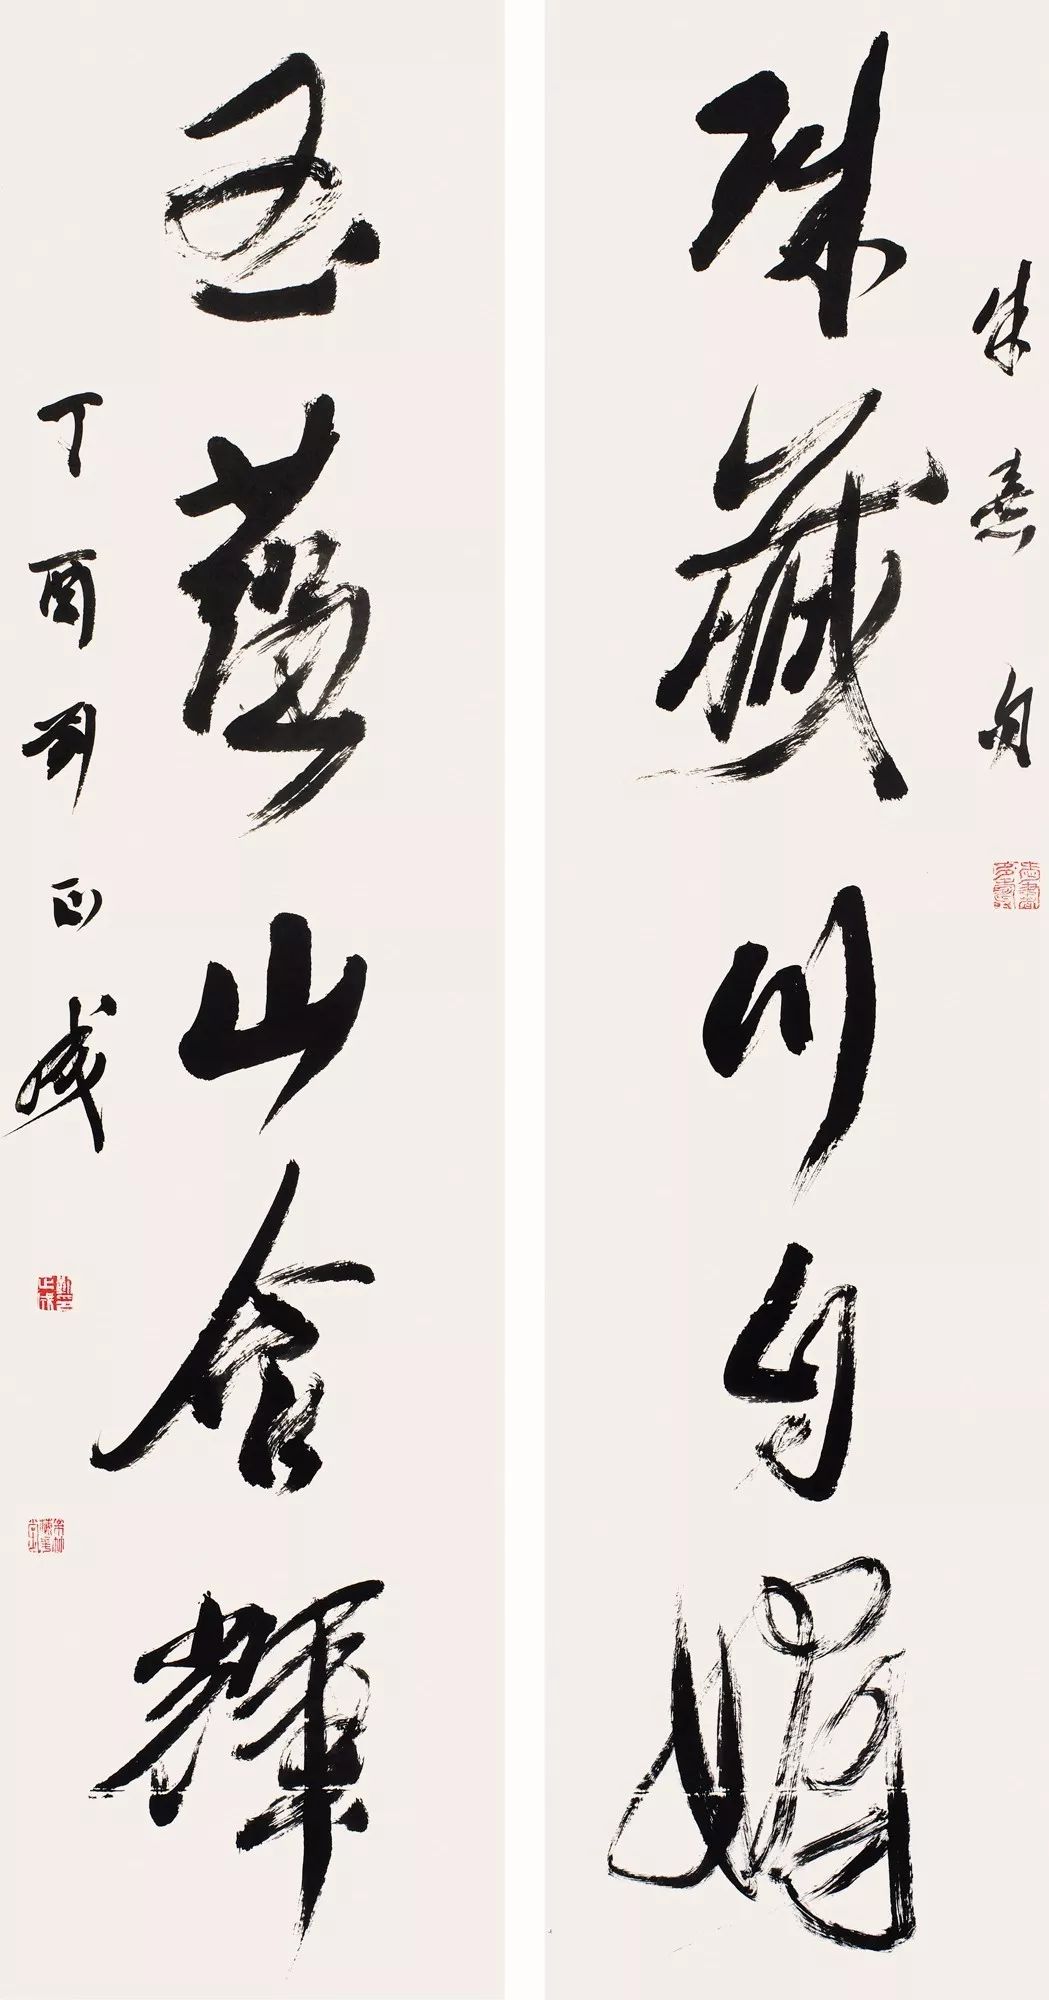 朱熹句
珠藏川自媚
玉蕴山含辉
丁酉刘正成